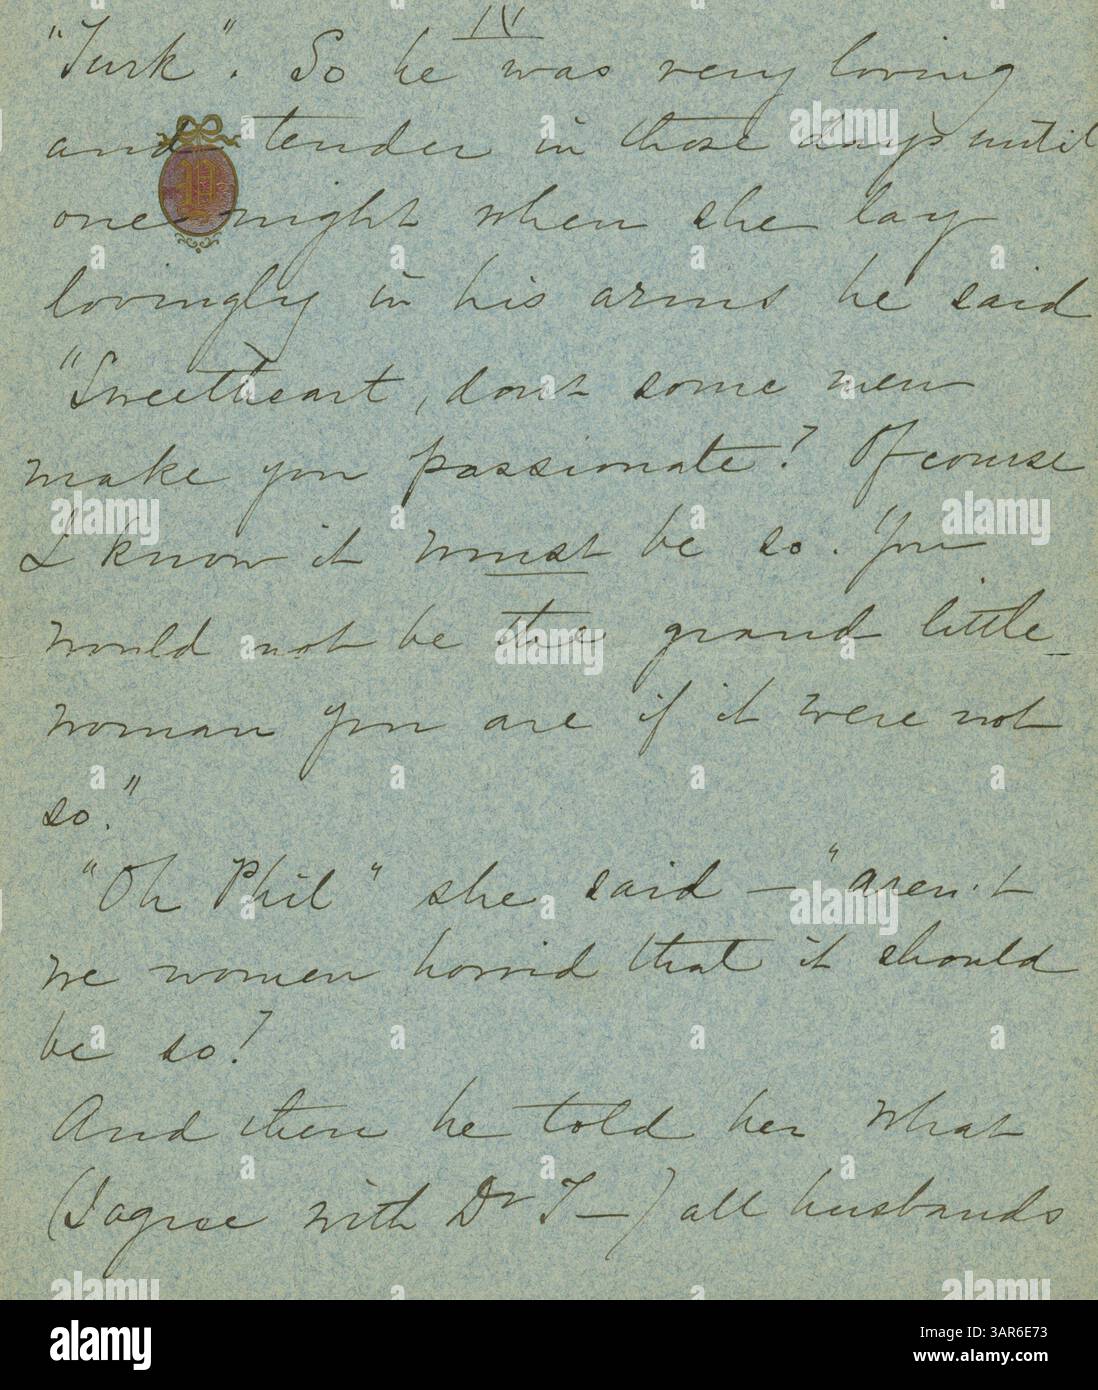 IV
"Turk". So he was very loving
and tender in those days until
one night when she lay
lovingly in his arms he said
"Sweetheart, dont some men
make you passionate? Of course
I know it must be so. You
would not be the grand little
woman you are if it were not
so."
"Oh Phil" she said — "aren't
we women horrid that it should
be so?
And then he told her what
(I agree with Dr T—) all husbands
alamy
Image ID: 3AR6E73
www.alamy.com